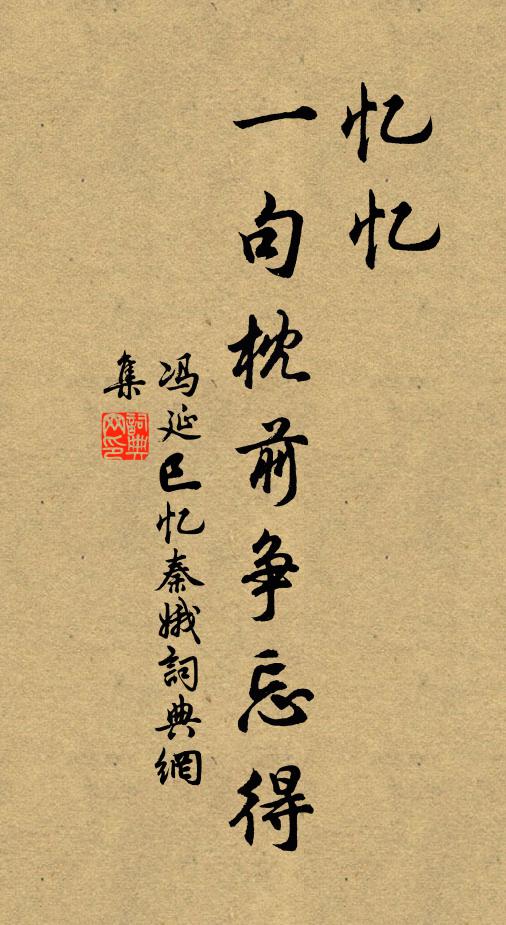 忆忆
一句枕前争忘得
冯延巳忆秦娥詞典網
集
詞典网印